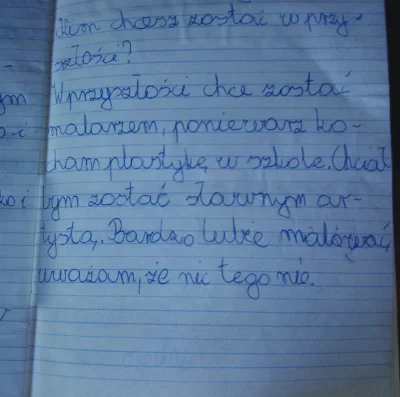 Kim chcesz zostać w przy-
szłości?
W przyszłości chce zostać
ym malarzem, poniewarz ko-
cham plastykę w szkole. Chciał
bym zostać sławnym ar-
tystą. Bardzo lubie malować,
uważam, że nic tego nie.